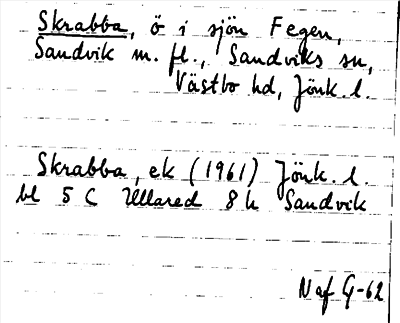 Skrabba, ö i sjön Fegen,
Sandvik m. fl., Sandviks sn,
Västbo hd, Jönk. l.
Skrabba, ek (1961) Jönk. l.
bl 5 C Ullared 8 h Sandvik
Naf G-62